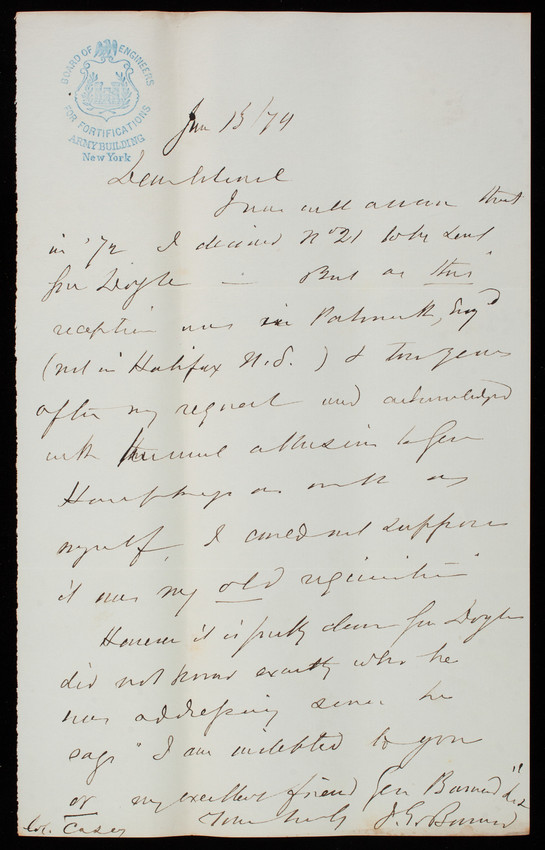 BOARD OF ENGINEERS
FOR FORTIFICATIONS
ARMY BUILDING
New York
Jan 15/74
Dear Colonel
I was well aware that
in '72 I desired No 21 to be sent
Gen Doyle — But as this
reception was in Portsmouth, Eng'd
(not in Halifax N.S.) & two years
after my request and acknowledged
with allusion to Gen
Humphreys as well as
myself, I could not suppose
it was my old requisition
However it is pretty clear Gen Doyle
did not know exactly who he
was addressing since he
says "I am indebted to you
or my excellent friend Gen Barnard" &c
Yours truly J. G. Barnard
Col. Casey